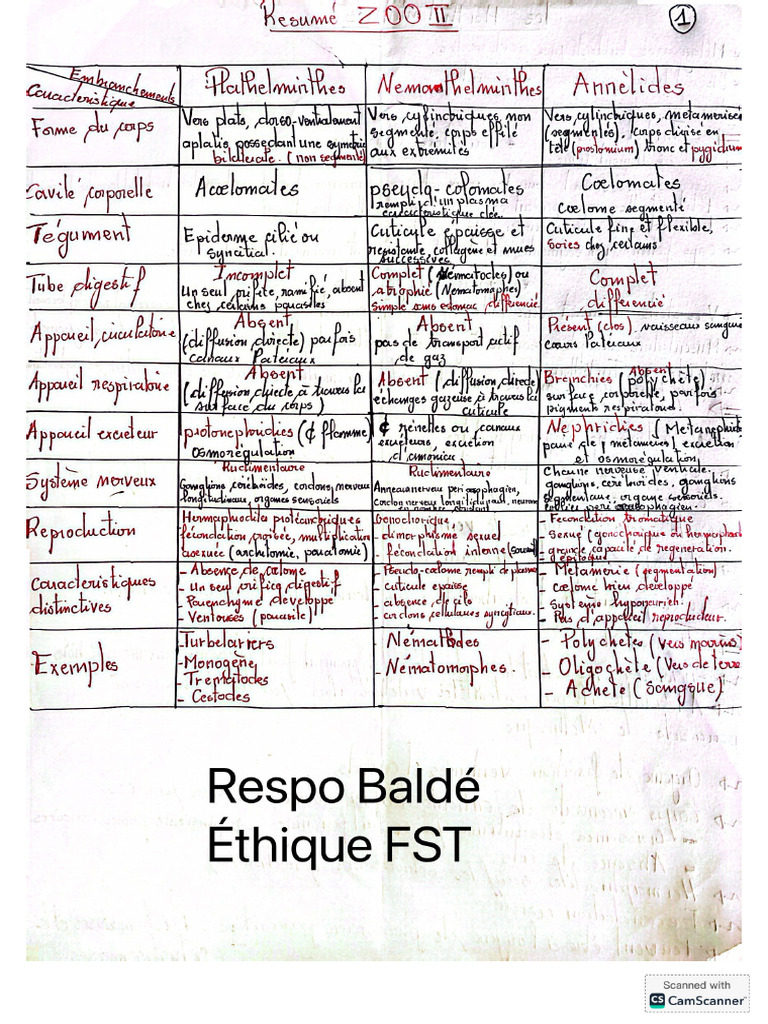 Resumé ZOO II
1
Embranchements
Caracteristique
Plathelminthes
Nemathelminthes
Annélides
Forme du corps
Vers plats, dorso-ventralement
aplatis possedant une symetrie
bilaterale. (non segmenté)
Vers cylindriques, non
segmenté, corps effilé
aux extremités
Vers cylindriques, metamerisés
(segmentés). Corps divisé en
tête (prostomium) tronc et pygidium
Cavité corporelle
Acœlomates
pseudo-colomates
rempli d'un plasma
caracteristique
Cœlomates
cœlome segmenté
Tégument
Epiderme cilié ou
syncitial.
Cuticule épaisse et
resistante, collagène et mues
successives
Cuticule fine et flexible,
soies chez certains
Tube digestif
Incomplet
Un seul orifice, ramifié, absent
chez certains parasites
Complet (Nematodes) ou
atrophié (Nematomorphes)
simple sans estomac differencié
Complet
differencié
Appareil, circulatoire
Absent
(diffusion directe) parfois
canaux latéraux
Absent
pas de transport actif
de gaz
Présent (clos). vaisseaux sanguins
cœurs latéraux
Appareil respiratoire
Absent
(diffusion directe à travers la
surface du corps)
Absent (diffusion, directe)
échanges gazeuse à travers la
cuticule
Branchies (polychète) Absent
surface corporelle, parfois
pigments respiratoires.
Appareil excreteur
protonephridies (¢ flamme)
osmorégulation
¢ reinelles ou canaux
excreteurs, excretion
d'amoniac
Nephridies (Metanephridies
paire de / metamères) excretion
et osmorégulation
Système nerveux
Rudimentaire
Ganglions cérébroïdes, cordons nerveux
longitudinaux, organes sensoriels
Rudimentaire
Anneau nerveux peri œsophagien,
Cordon nerveux longitudinaux, neurones
en nombre constant
Chaine nerveuse ventrale,
ganglions, cérébroïdes, ganglions
segmentaire, organe sensoriels.
collier peri œsophagien
Reproduction
Hermaphrodite protéandriques
fécondation croisée, multiplication
asexuée (architomie, paratomie)
Gonochorique
- dimorphisme sexuel
- fécondation interne (souvent)
- Fécondation
- sexué (gonochorique ou hermaphrodite
- grande capacité de regeneration.
- épitoquie
Caracteristiques
distinctives
- Absence de cœlome
- Un seul orifice digestif
- Parenchyme developpé
- Ventouses (parasite)
- Pseudo-cœlome rempli de plasma
- cuticule epaisse
- absence de cils
- cordons cellulaires syncytiaux.
- Metamerie (segmentation)
- cœlome bien developpé
- Systeme hyponeurien.
- Pas d'appareil reproducteur.
Exemples
-Turbelariers
-Monogène
- Trematodes
- Cestodes
- Nématodes
- Nématomorphes.
- Polychetes (Vers marins)
- Oligochète (Vers de terre
- Achete (Sangsue)
Respo Baldé
Éthique FST
Scanned with
CS CamScanner